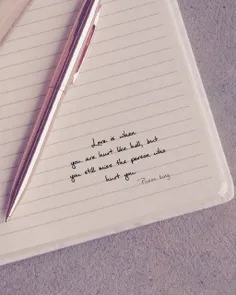 Love is when
you are hurt like hell, but
you still miss the person who
hurt you